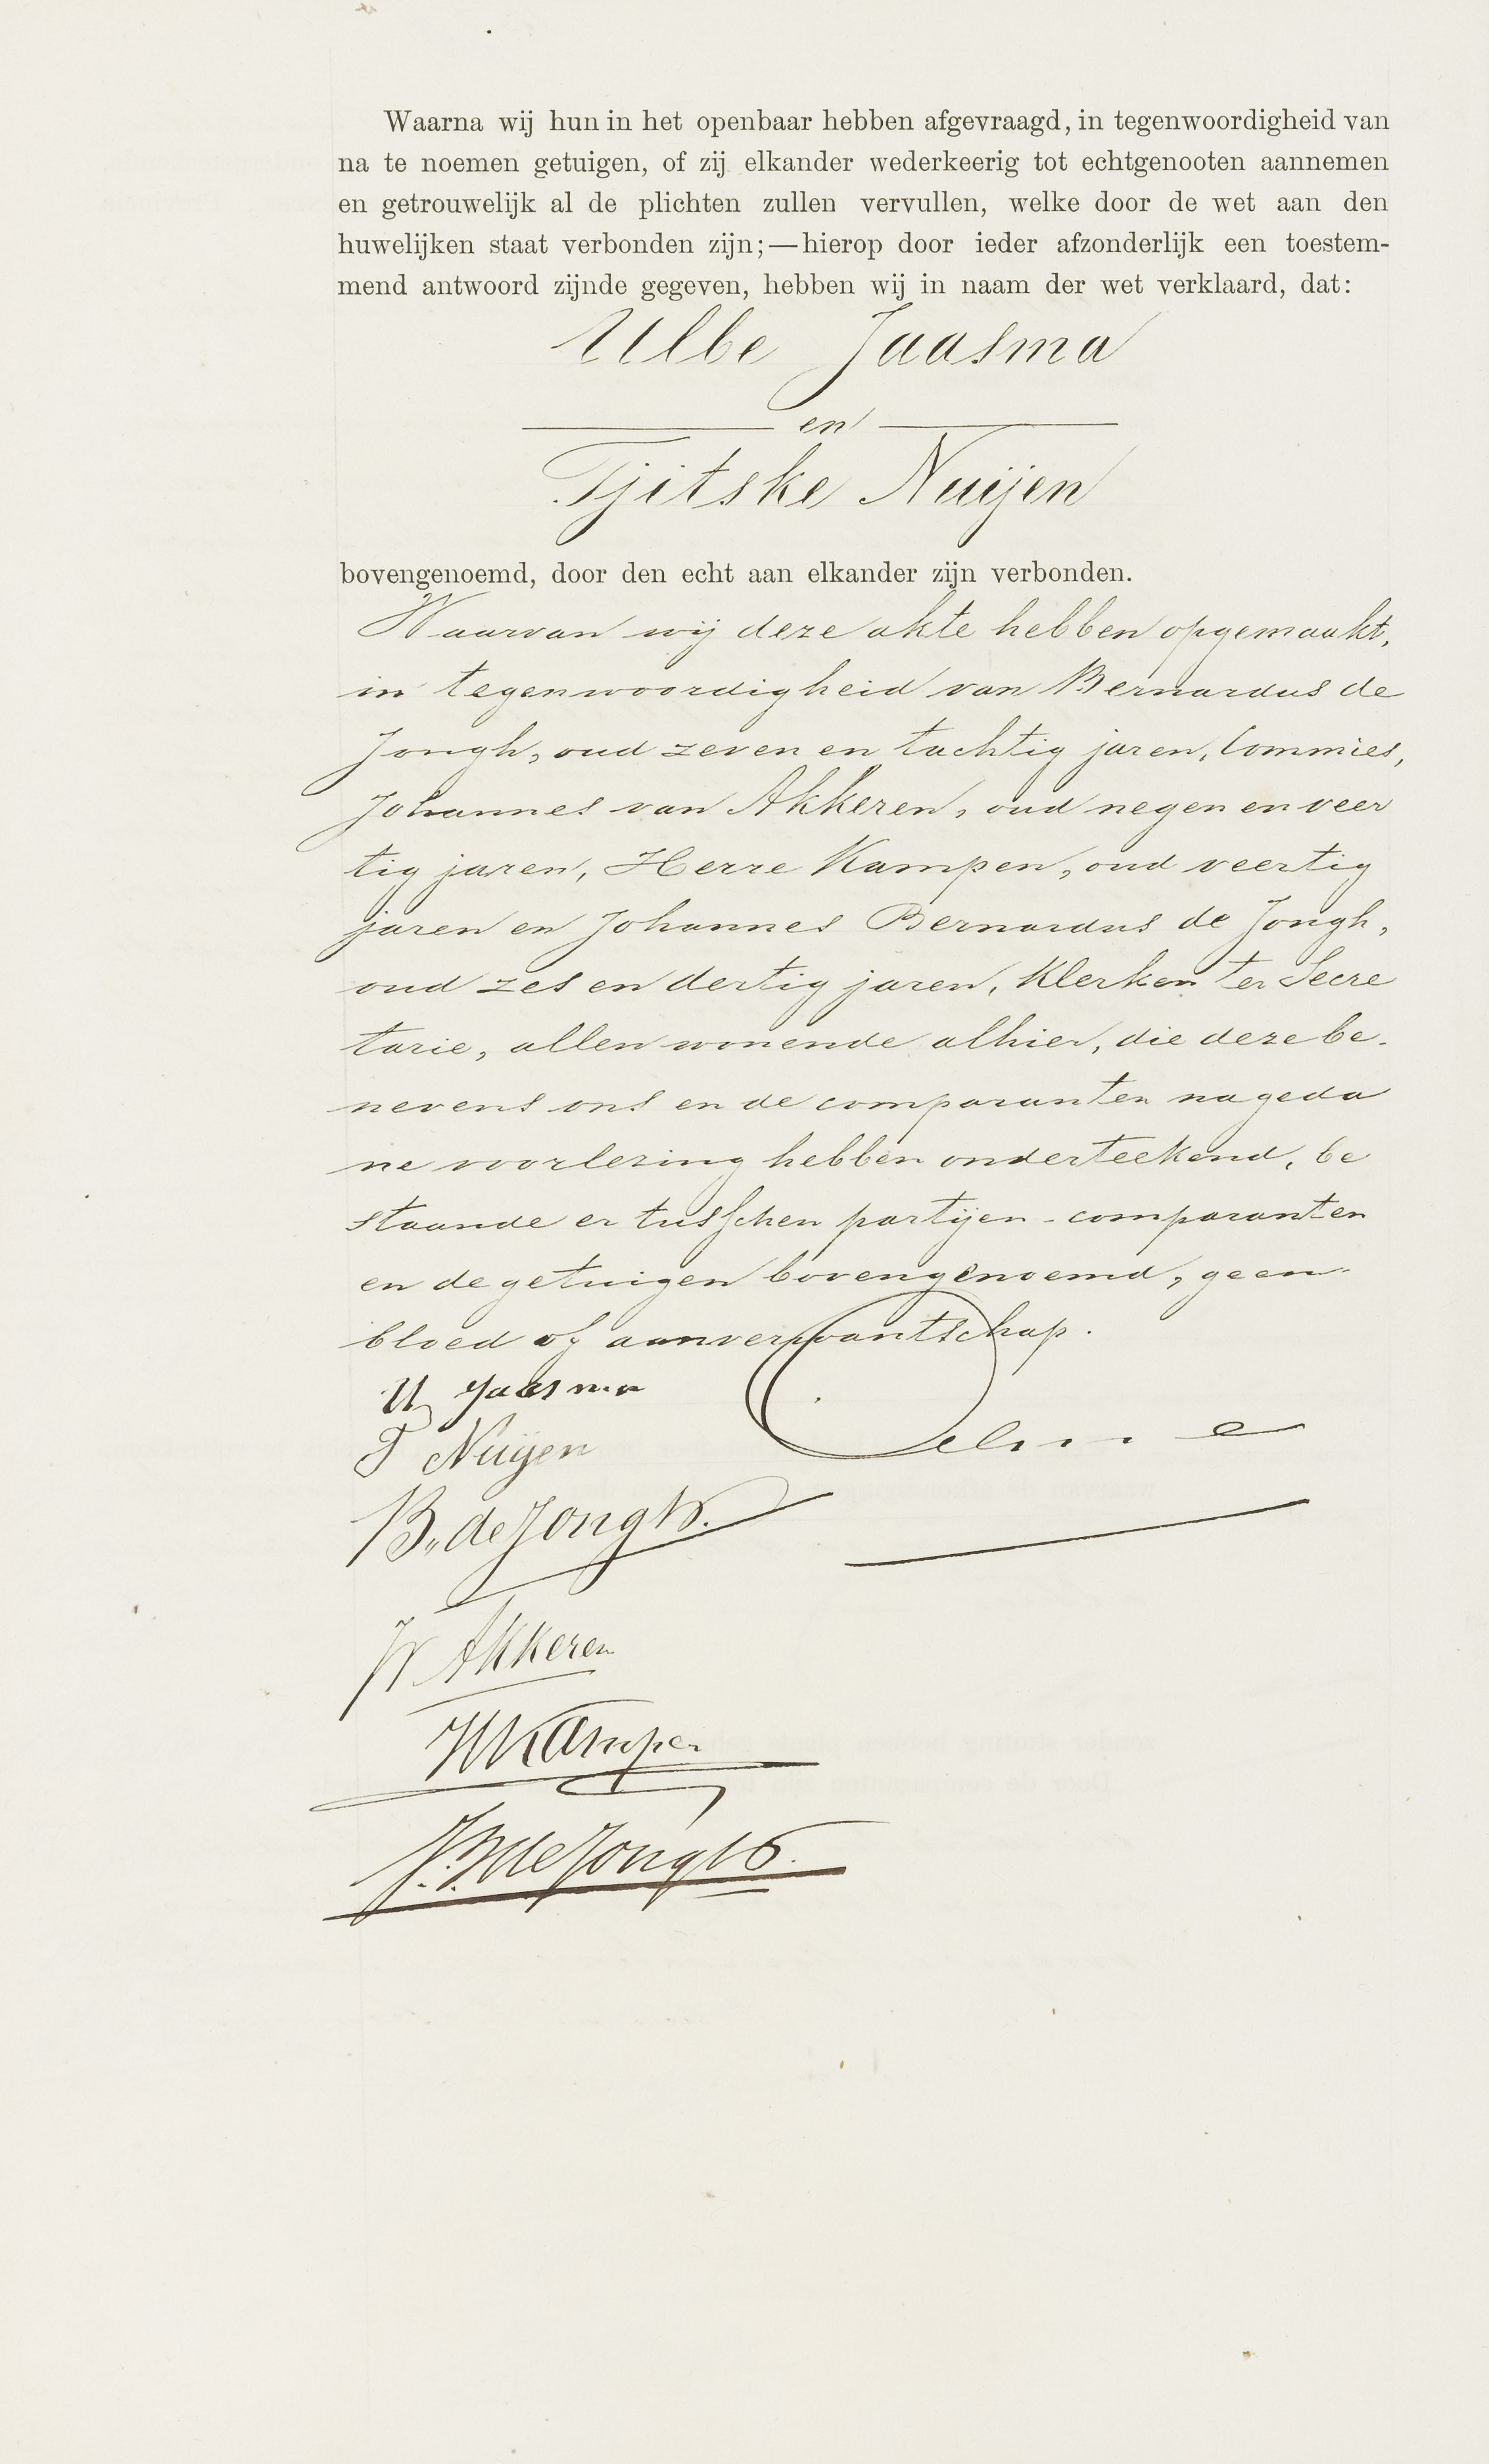 Waarna wij hun in het openbaar hebben afgevraagd, in tegenwoordigheid van
na te noemen getuigen, of zij elkander wederkeerig tot echtgenooten aannemen
en getrouwelijk al de plichten zullen vervullen, welke door de wet aan den
huwelijken staat verbonden zijn;—hierop door ieder afzonderlijk een toestem-
mend antwoord zijnde gegeven, hebben wij in naam der wet verklaard, dat:
Ulbe Jaasma
en
Tjitske Nuijen
bovengenoemd, door den echt aan elkander zijn verbonden.
Waarvan wij deze akte hebben opgemaakt,
in tegenwoordigheid van Bernardus de
Jongh, oud zeven en tachtig jaren, Commies,
Johannes van Akkeren, oud negen en veer
tig jaren, Herre Kampen, oud veertig
jaren en Johannes Bernardus de Jongh,
oud zes en dertig jaren, Klerken ter Secre
tarie, allen wonende alhier, die deze be-
nevens ons en de comparanten na geda
ne voorlezing hebben onderteekend, be
staande er tusschen partijen-comparanten
en de getuigen bovengenoemd, geen
bloed of aanverwantschap.
U Jaasma
T Nuijen
B. de Jongh.
JV Akkeren
HKampen
J.B. de Jongh.